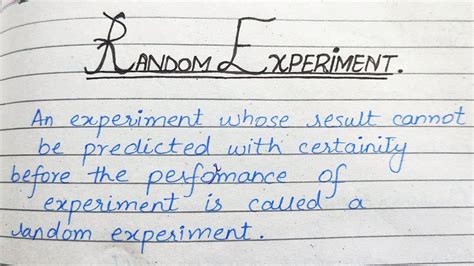 RANDOM EXPERIMENT.
An experiment whose result cannot
be predicted with certainity
before the perfomance of
experiment is called a
random experiment.